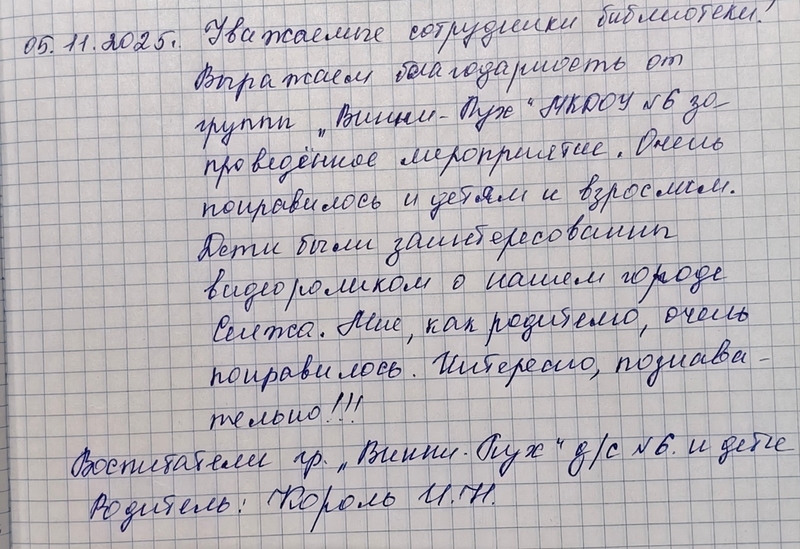 05.11.2025г. Уважаемые сотрудники библиотеки!
Выражаем благодарность от
группы „Винни-Пух“ МКДОУ №6 за
проведённое мероприятие. Очень
понравилось и детям и взрослым.
Дети были заинтересованы
видеороликом о нашем городе
Сельцо. Мне, как родителю, очень
понравилось. Интересно, познава-
тельно!!!
Воспитатели гр. „Винни-Пух“ д/с №6. и дети
Родитель: Король И.Н.